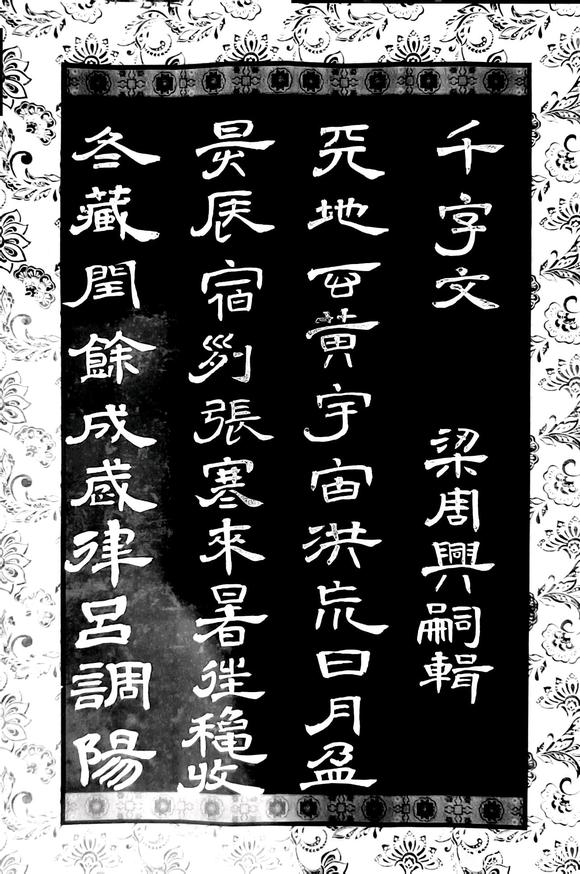 千字文 梁周興嗣輯
天地玄黃宇宙洪荒日月盈
昃辰宿列張寒來暑往穐收
冬藏閏餘成歲律呂調陽